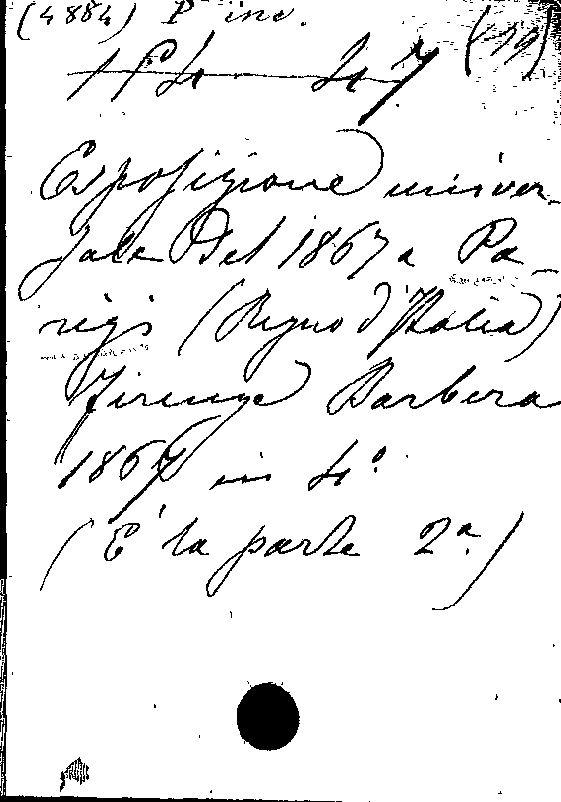 (4884) P inc. (19)
Esposizione univer-
sale del 1867 a Pa-
rigi (Regno d'Italia)
Firenze Barbera
1867 in 4°
(È la parte 2ª.)